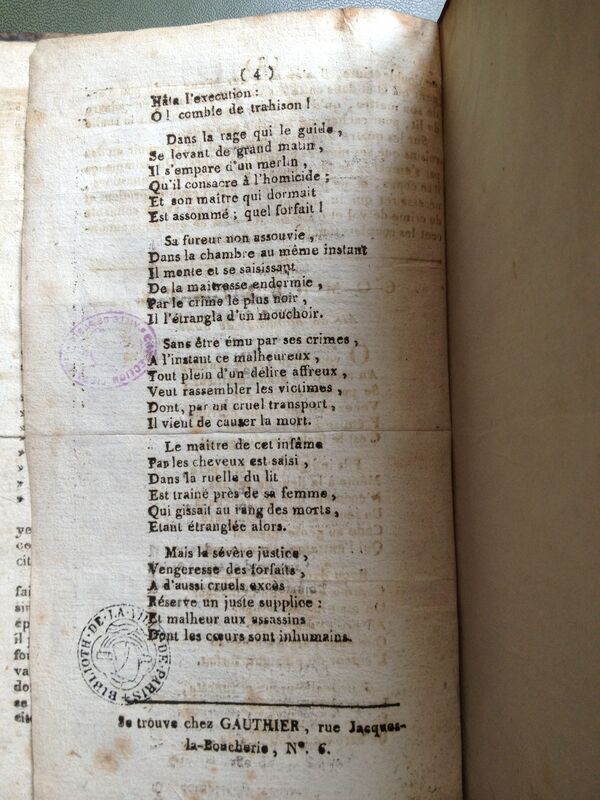 (4)
Hâta l'execution :
O ! comble de trahison !
Dans la rage qui le guide,
Se levant de grand matin,
Il s'empare d'un merlin,
Qu'il consacre à l'homicide ;
Et son maitre qui dormait
Est assommé ; quel forfait !
Sa fureur non assouvie,
Dans la chambre au même instant
Il monte et se saisissant
De la maitresse endormie,
Par le crime le plus noir,
Il l'étrangla d'un mouchoir.
Sans être ému par ses crimes,
A l'instant ce malheureux,
Tout plein d'un délire affreux,
Veut rassembler les victimes,
Dont, par un cruel transport,
Il vient de causer la mort.
Le maitre de cet infâme
Par les cheveux est saisi,
Dans la ruelle du lit
Est trainé près de sa femme,
Qui gissait au rang des morts,
Etant étranglée alors.
Mais la sévère justice,
Vengeresse des forfaits,
A d'aussi cruels excès
Réserve un juste supplice :
Et malheur aux assassins
Dont les cœurs sont inhumains.
BIBLIOTH. DE LA VILLE DE PARIS
Se trouve chez GAUTHIER, rue Jacques-
la-Boucherie, N°. 6.